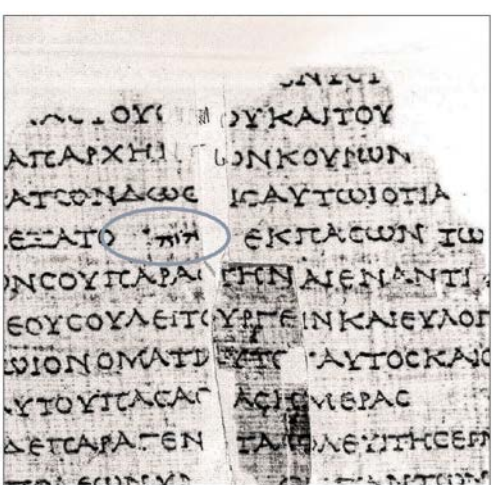 ΟΥ ΟΥΚΑΙΤΟΥ
ΑΠΑΡΧΗΝ ΩΝΚΟΥΡΩΝ
ΑΤΩΝΔΩϹΕ ΙϹΑΥΤΩΙΟΤΙΑ
ΕΞΑΤΟ יהוה ΕΚΠΑϹΩΝ ΤΩ
ΩΝϹΟΥΠΑΡΑϹ ΤΗΝΑΙΕΝΑΝΤΙ
ΕΟΥϹΟΥΛΕΙΤΟΥΡΓΕΙΝΚΑΙΕΥΛΟΓ
ΤΩΙΟΝΟΜΑΤΙ ΑΥΤΟΥ ΑΥΤΟϹΚΑΙΟ
ΑΥΤΟΥΠΑϹΑϹ ΑϹΗΜΕΡΑϹ
ΔΕΠΑΡΑΓΕΝ ΤΑΙΟΛΕΥΙΤΗϹΕΡ